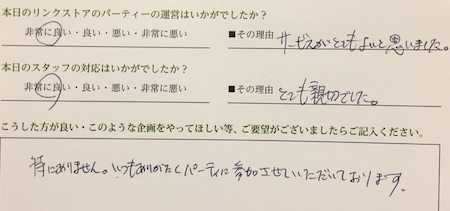 本日のリンクストアのパーティーの運営はいかがでしたか?
非常に良い・良い・悪い・非常に悪い ■その理由 サービスがとてもよいと思いました。
本日のスタッフの対応はいかがでしたか?
非常に良い・良い・悪い・非常に悪い ■その理由 とても親切でした。
こうした方が良い・このような企画をやってほしい等、ご要望がございましたらご記入ください。
特にありません。いつもありがたくパーティに参加させていただいております。